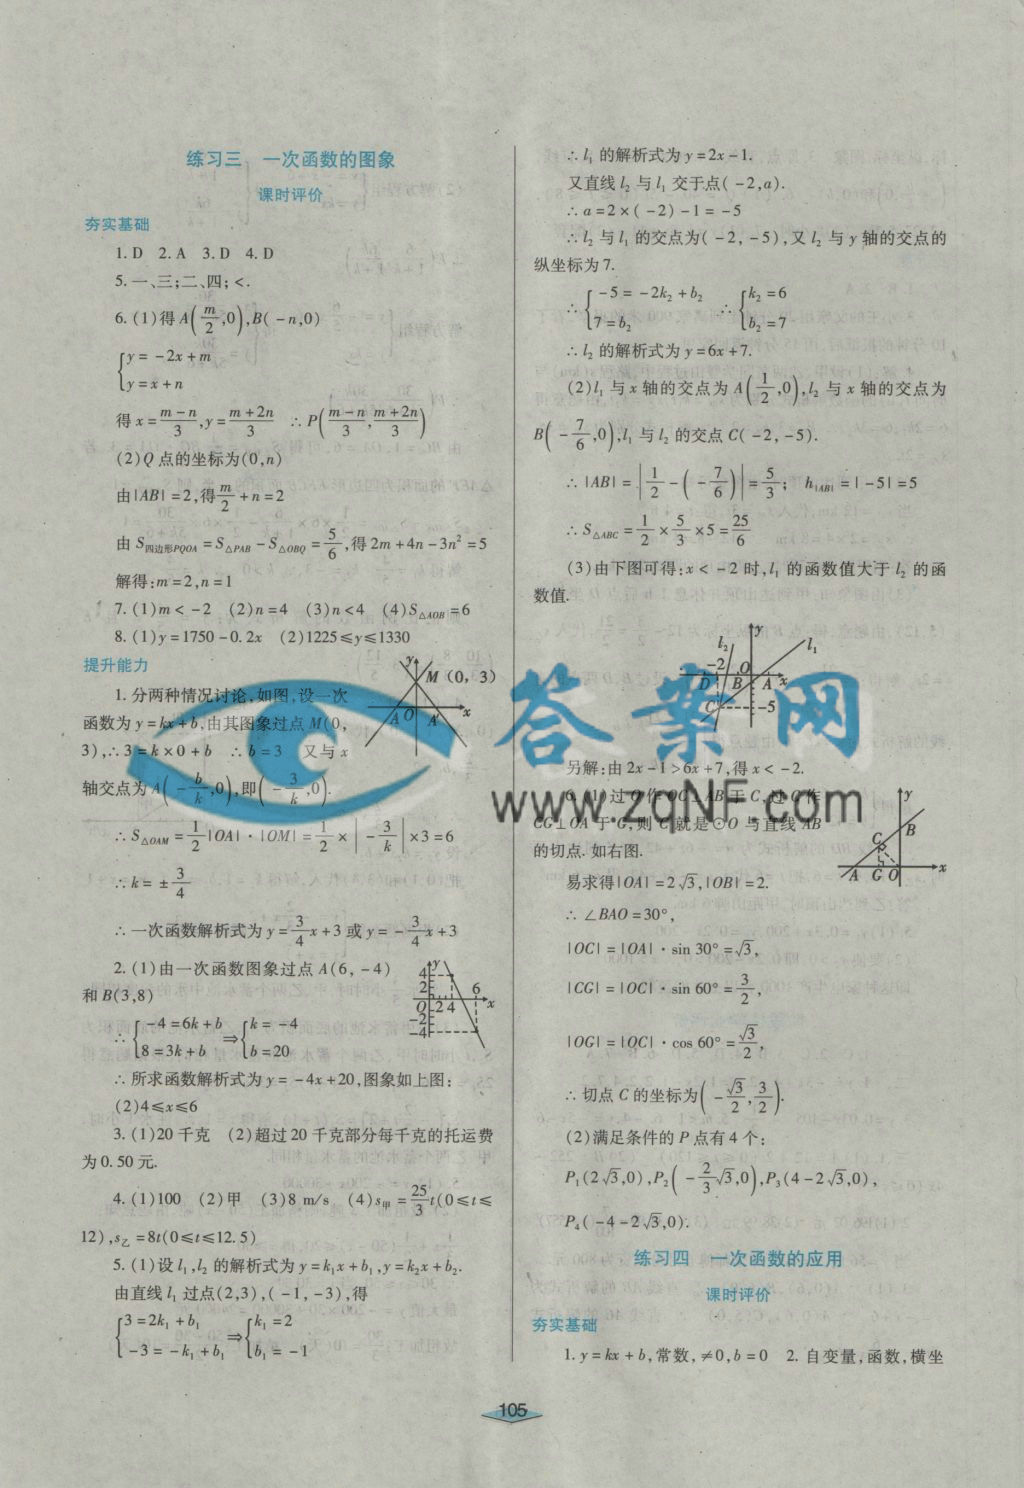 练习三 一次函数的图象
课时评价
夯实基础
1. D 2. A 3. D 4. D
5. 一、三;二、四; <.
6. (1)得A(m/2,0),B(-n,0)
{y=-2x+m
y=x+n
得x=(m-n)/3,y=(m+2n)/3 ∴P((m-n)/3,(m+2n)/3)
(2)Q点的坐标为(0,n)
由|AB|=2,得m/2+n=2
由S四边形PQOA=S△PAB-S△OBQ=5/6,得2m+4n-3n²=5
解得:m=2,n=1
7. (1)m<-2 (2)n=4 (3)n<4 (4)S△AOB=6
8. (1)y=1750-0.2x (2)1225≤y≤1330
提升能力
1. 分两种情况讨论,如图,设一次
函数为y=kx+b,由其图象过点M(0,
3),∴3=k×0+b ∴b=3 又与x
轴交点为A(-b/k,0),即(-3/k,0).
y
M(0,3)
A O A′ x
∴S△OAM=1/2|OA|·|OM|=1/2×|-3/k|×3=6
∴k=±3/4
∴一次函数解析式为y=3/4x+3或y=-3/4x+3
2. (1)由一次函数图象过点A(6,-4)
和B(3,8)
∴{-4=6k+b
8=3k+b ⇒{k=-4
b=20
y
4
2
6
O 2 4 x
-2
-4
∴所求函数解析式为y=-4x+20,图象如上图:
(2)4≤x≤6
3. (1)20千克 (2)超过20千克部分每千克的托运费
为0.50元.
4. (1)100 (2)甲 (3)8 m/s (4)s甲=25/3t(0≤t≤
12),s乙=8t(0≤t≤12.5)
5. (1)设l₁,l₂的解析式为y=k₁x+b₁,y=k₂x+b₂.
由直线l₁过点(2,3),(-1,-3),得
{3=2k₁+b₁
-3=-k₁+b₁ ⇒{k₁=2
b₁=-1
∴l₁的解析式为y=2x-1.
又直线l₂与l₁交于点(-2,a).
∴a=2×(-2)-1=-5
∴l₂与l₁的交点为(-2,-5),又l₂与y轴的交点的
纵坐标为7.
∴{-5=-2k₂+b₂
7=b₂ ∴{k₂=6
b₂=7
∴l₂的解析式为y=6x+7.
(2)l₁与x轴的交点为A(1/2,0),l₂与x轴的交点为
B(-7/6,0),l₁与l₂的交点C(-2,-5).
∴|AB|=|1/2-(-7/6)|=5/3; h|AB|=|-5|=5
∴S△ABC=1/2×5/3×5=25/6
(3)由下图可得:x<-2时,l₁的函数值大于l₂的函
数值.
l₂ y l₁
-2 O
D B A x
C -5
另解:由2x-1>6x+7,得x<-2.
6. (1)过O作OC⊥AB于C,过C作
CG⊥OA于G,则C就是⊙O与直线AB
的切点.如右图.
y
B
C
A G O x
易求得|OA|=2√3,|OB|=2.
∴∠BAO=30°,
|OC|=|OA|·sin 30°=√3,
|CG|=|OC|·sin 60°=3/2,
|OG|=|OC|·cos 60°=√3/2,
∴切点C的坐标为(-√3/2,3/2).
(2)满足条件的P点有4个:
P₁(2√3,0),P₂(-2/3√3,0),P₃(4-2√3,0),
P₄(-4-2√3,0).
练习四 一次函数的应用
课时评价
夯实基础
1. y=kx+b,常数,≠0,b=0 2. 自变量,函数,横坐
105
答案网
www.zqNF.com